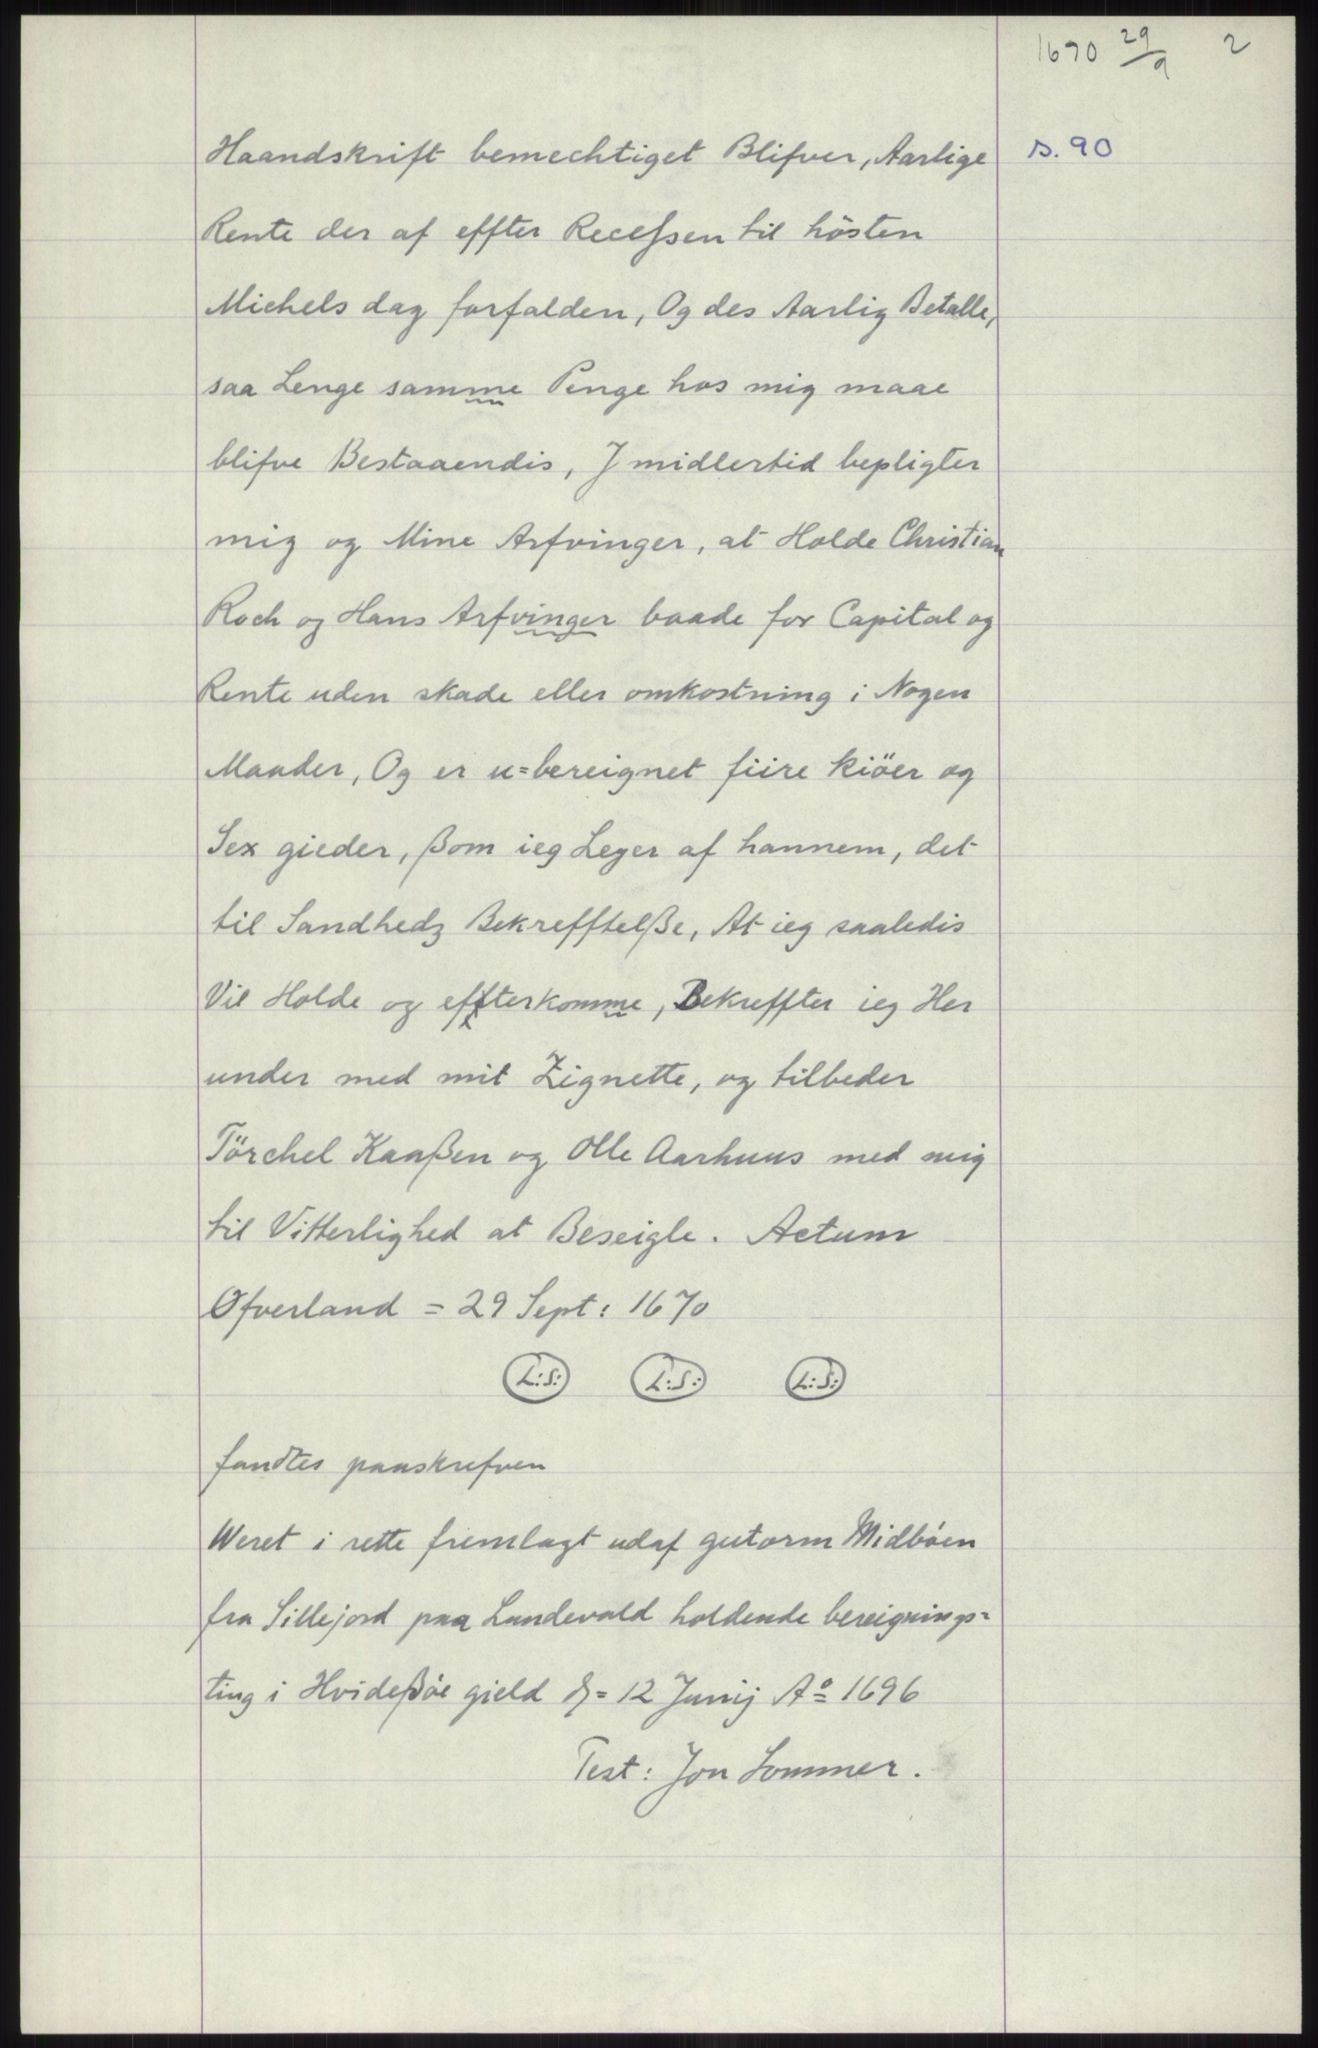 1670 29/9 2
Haandskrift bemechtiget Blifver, Aarlige s. 90
Rente der af effter Recessen til hösten
Michels dag forfalden, Og des Aarlig Betalle,
saa Lenge samme Penge hos mig maae
blifve Bestaaendis, J midlertid bepligter
mig og Mine Arfvinger, at Holde Christian
Roch og Hans Arfvinger baade for Capital og
Rente uden skade eller omkostning i Nogen
Maader, Og er u=bereignet fiire kiöer og
Sex gieder, ßom ieg Leyer af hannem, det
til Sandhedz Bekrefftelße, At ieg saaledis
Vil Holde og effterkomme, Bekreffter ieg Her
under med mit Zignette, og tilbeder
Törchel Kaaßen og Olle Aarhuus med mig
til Vitterlighed at Beseigle. Actum
Øfverland = 29 Sept: 1670
L:S: L:S: L:S:
fandtes paaskrefven
Weret i rette fremlagt udaf gutorm Midbøen
fra Sillejord paa Lundevald holdende bereignings=
ting i Hvideßöe gield d= 12 Junij Aº 1696
Test: Jon Sommer.